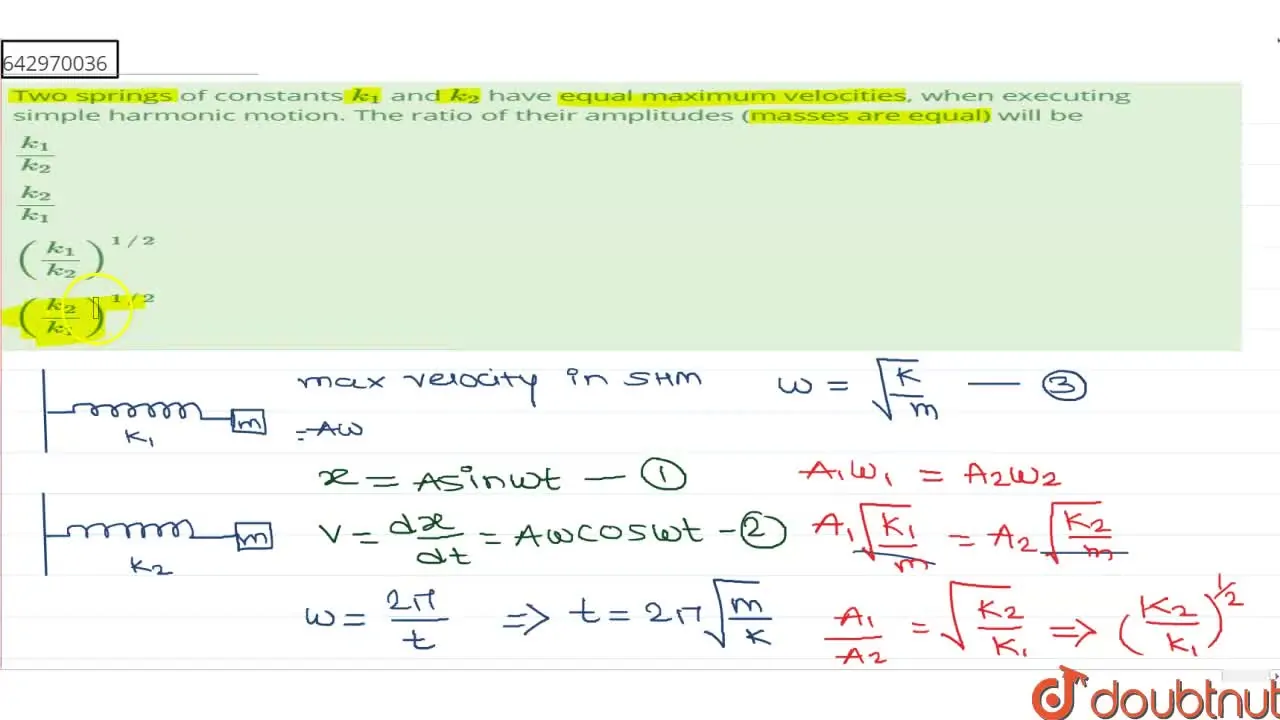 642970036
Two springs of constants k₁ and k₂ have equal maximum velocities, when executing
simple harmonic motion. The ratio of their amplitudes (masses are equal) will be
k₁/k₂
k₂/k₁
(k₁/k₂)^1/2
(k₂/k₁)^1/2
max velocity in SHM
= Aω
K₁
m
K₂
m
x = A sin ωt — ①
v = dx/dt = Aω cos ωt - ②
ω = 2π/t ⇒ t = 2π√(m/k)
ω = √(K/m) — ③
A₁ω₁ = A₂ω₂
A₁√(K₁/m) = A₂√(K₂/m)
A₁/A₂ = √(K₂/K₁) ⇒ (K₂/K₁)^1/2
doubtnut